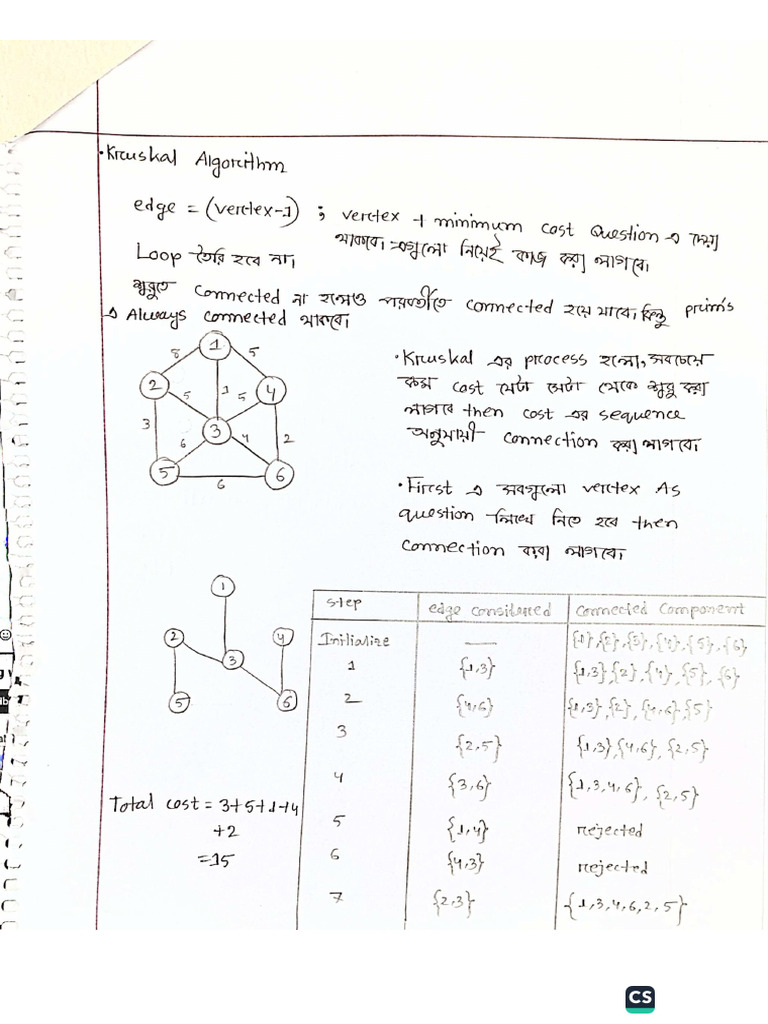 •Kruskal Algorithm
edge = (vertex-1) ; vertex + minimum cost question এ দেয়া
থাকবে। এগুলো নিয়েই কাজ করা লাগবে।
Loop তৈরি হবে না।
শুরুতে connected না হলেও পরবর্তীতে connected হয়ে যাবে। কিন্তু prim's
এ Always connected থাকবে।
1
8
5
2
5
1
5
4
3
3
6
4
2
5
6
6
•Kruskal এর process হলো, সবচেয়ে
কম cost যেটা সেটা থেকে শুরু করা
লাগবে then cost এর sequence
অনুযায়ী connection করা লাগবে।
•First এ সবগুলো vertex As
question লিখে নিতে হবে then
connection করা লাগবে।
1
2
4
3
5
6
Total cost = 3+5+1+4
+2
=15
step edge considered connected component
Initialize — {1},{2},{3},{4},{5},{6}
1 {1,3} {1,3},{2},{4},{5},{6}
2 {4,6} {1,3},{2},{4,6},{5}
3 {2,5} {1,3},{4,6},{2,5}
4 {3,6} {1,3,4,6},{2,5}
5 {1,4} rejected
6 {4,3} rejected
7 {2,3} {1,3,4,6,2,5}
CS